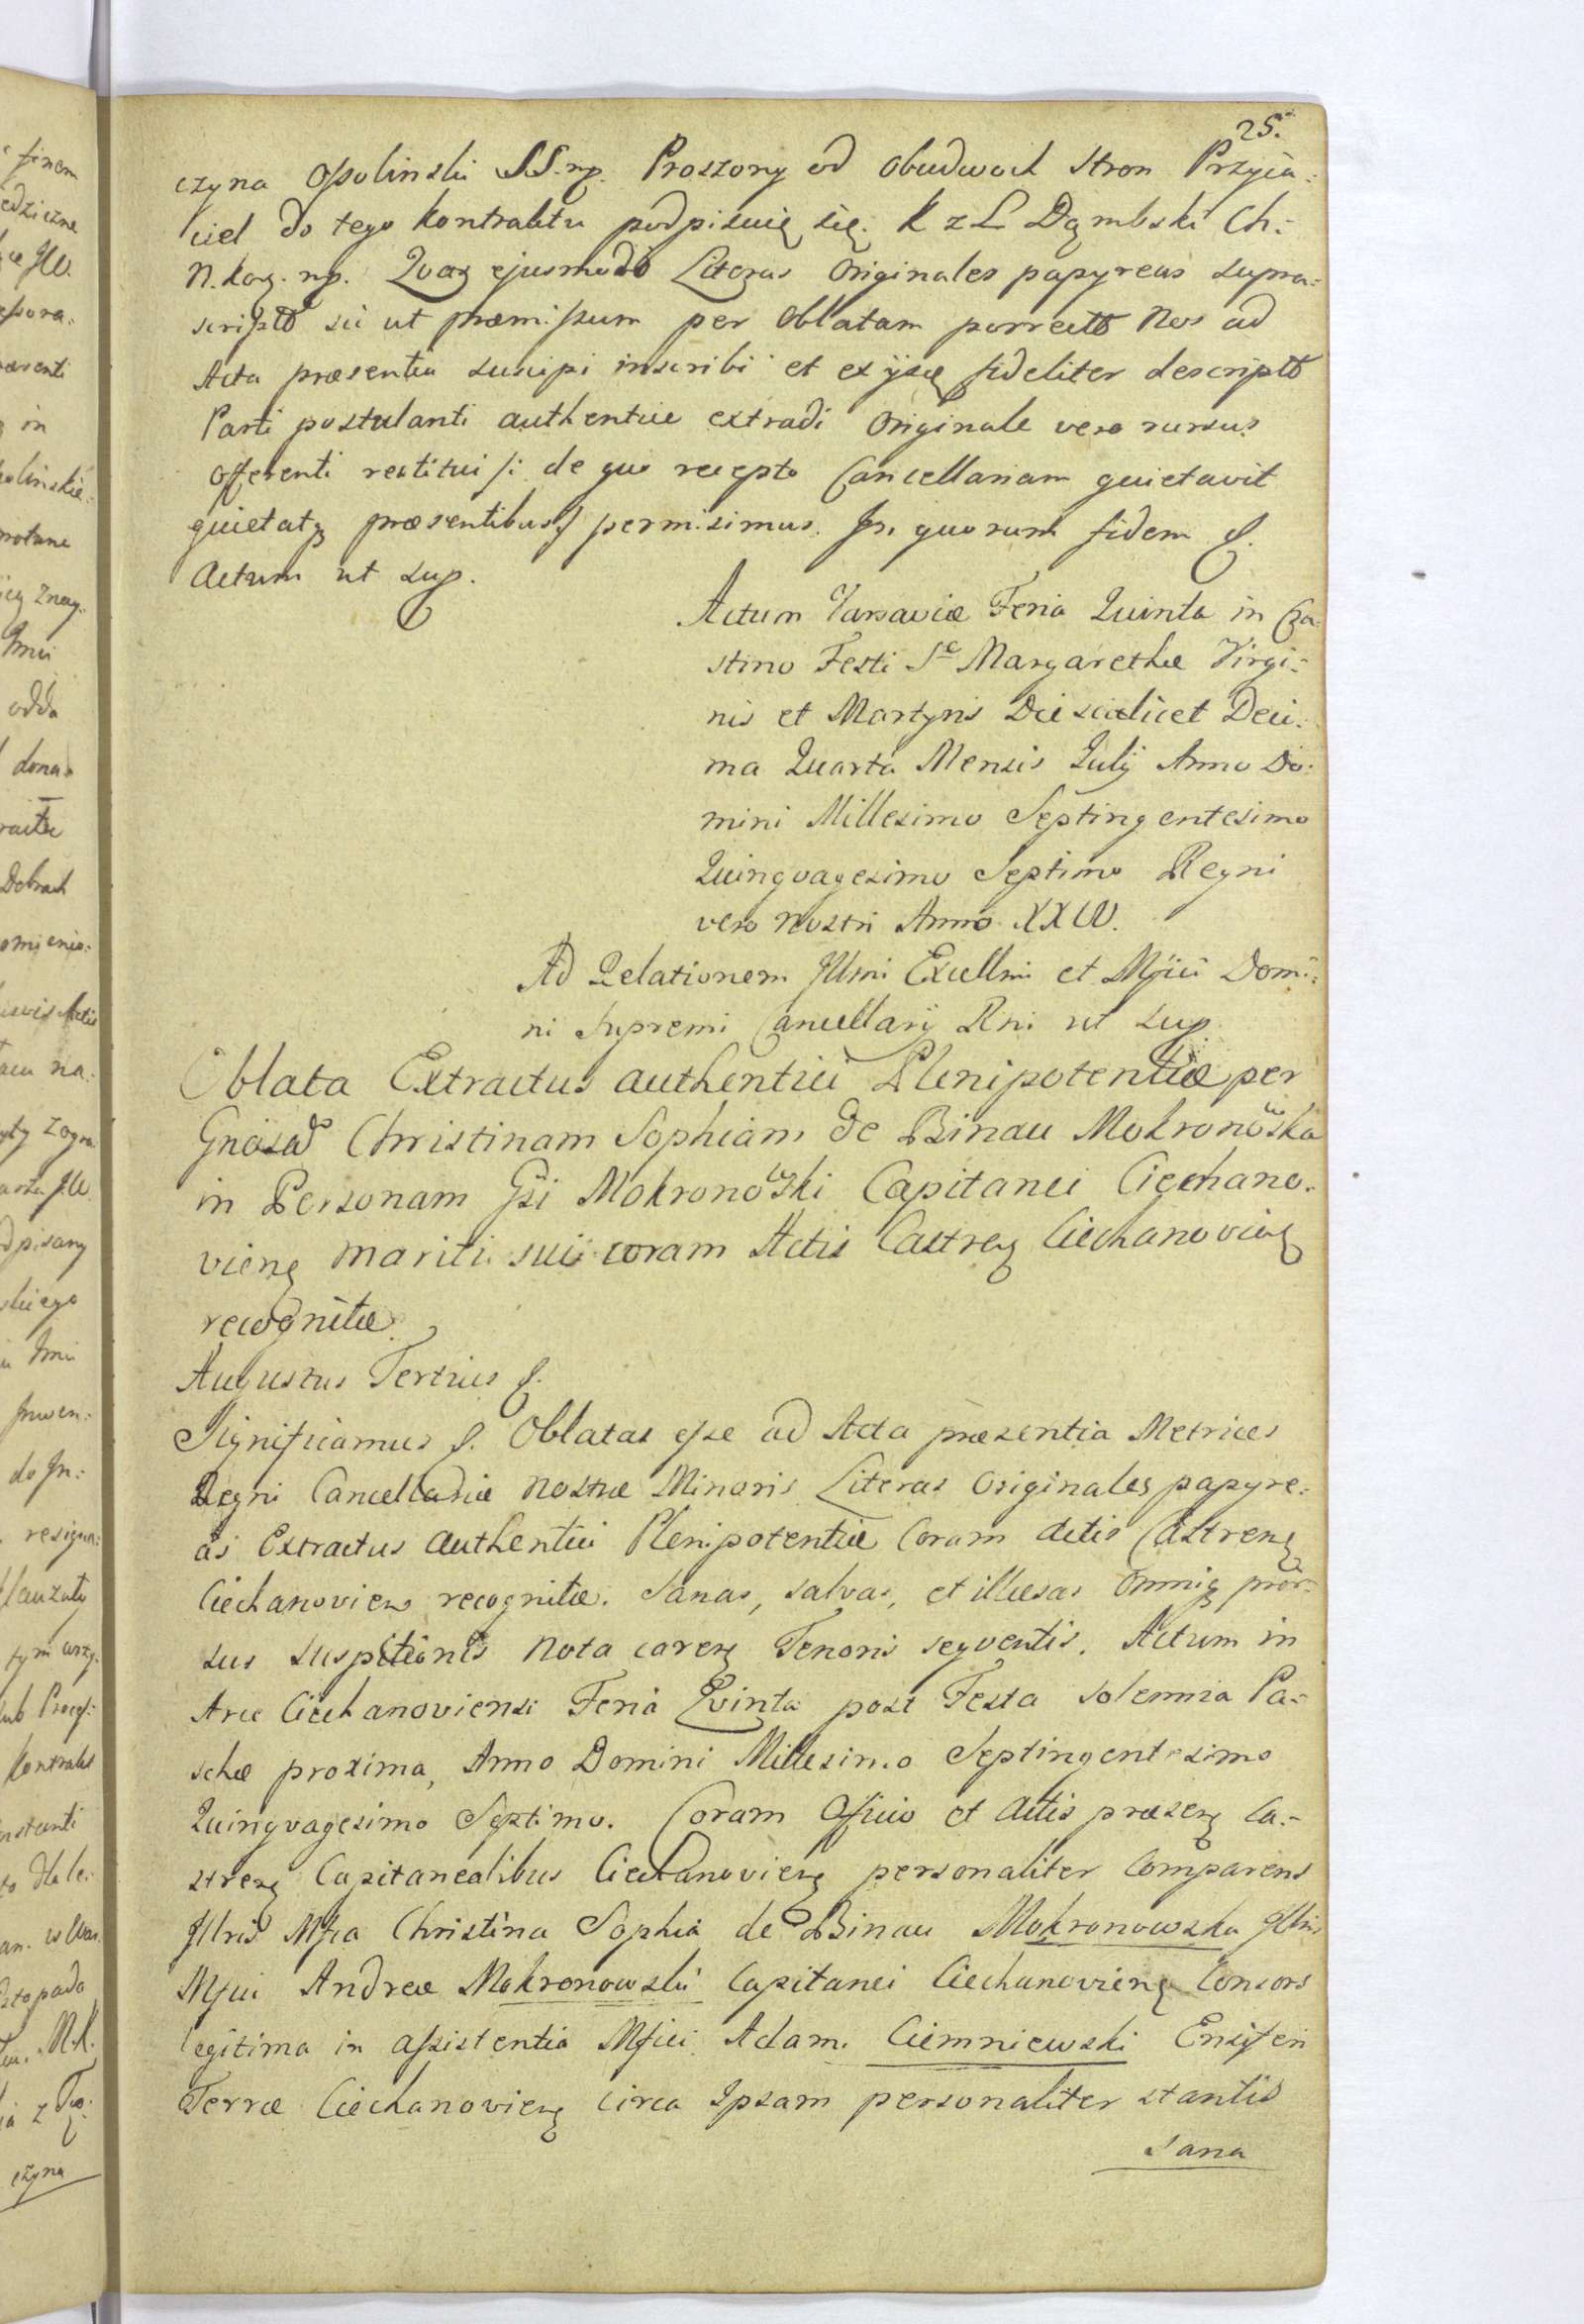 25.
czyna Ossolinski SS. mp. Proszony od obudwoch Stron Przyia-
ciel do tego kontraktu podpisuię się. K z L Dąmbski Ch:
N. kor. mp. Quas ejusmodi Literas Originales papyreas supra-
scripto sic ut præmissum per Oblatam porrectas Nos ad
Acta præsentia suscipi inscribi et ex ijsq fideliter descriptas
Parti postulanti authentice extradi Originale vero rursus
Offerenti restitui /: de quo recepto Cancellariam quietavit
quietatq præsentibus :/ permisimus. In quorum fidem &.
Actum ut sup.
Actum Varsaviæ Feria Quinta in Cra-
stino Festi Sæ Margarethæ Virgi-
nis et Martyris Die scilicet Deci-
ma Quarta Mensis Julij Anno Do-
mini Millesimo Septingentesimo
Quinquagesimo Septimo Regni
vero Nostri Anno XXIV.
Ad Relationem Illmi Excellmi et Mfici Domi-
ni Supremi Cancellarij Rni ut sup.
Oblata Extractus authentici Plenipotentiæ per
Gnosam Christinam Sophiam de Binau Mokronowska
in Personam Gsi Mokronowski Capitanei Ciechano-
vien mariti sui coram Actis Castren Ciechanovien
recognitæ.
Augustus Tertius &.
Significamus &. Oblatas esse ad Acta præsentia Metrices
Regni Cancellariæ Nostræ Minoris Literas Originales papyre-
as Extractus authentici Plenipotentiæ Coram Actis Castren
Ciechanovien recognitæ. Sanas, salvas, et illæsas omniq pror-
sus suspitionis nota caren Tenoris sequentis. Actum in
Arce Ciechanoviensi Feria Qvinta post Festa solennia Pa-
schæ proxima, Anno Domini Millesimo Septingentesimo
Quinqvagesimo Septimo. Coram Officio et Actis præsen Ca-
stren Capitanealibus Ciechanovien personaliter Comparens
Illris Mfca Christina Sophia de Binau Mokronowska Illris
Mfici Andreæ Mokronowski Capitanei Ciechanovien Consors
legitima in assistentia Mfici Adam Ciemniewski Ensiferi
Terræ Ciechanovien circa Ipsam personaliter stantis
Sana